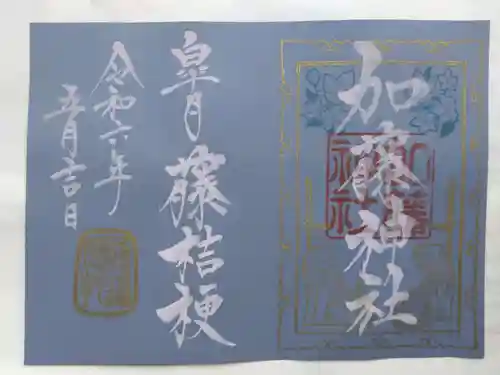 加藤神社
皐月
藤桔梗
令和六年
五月吉日